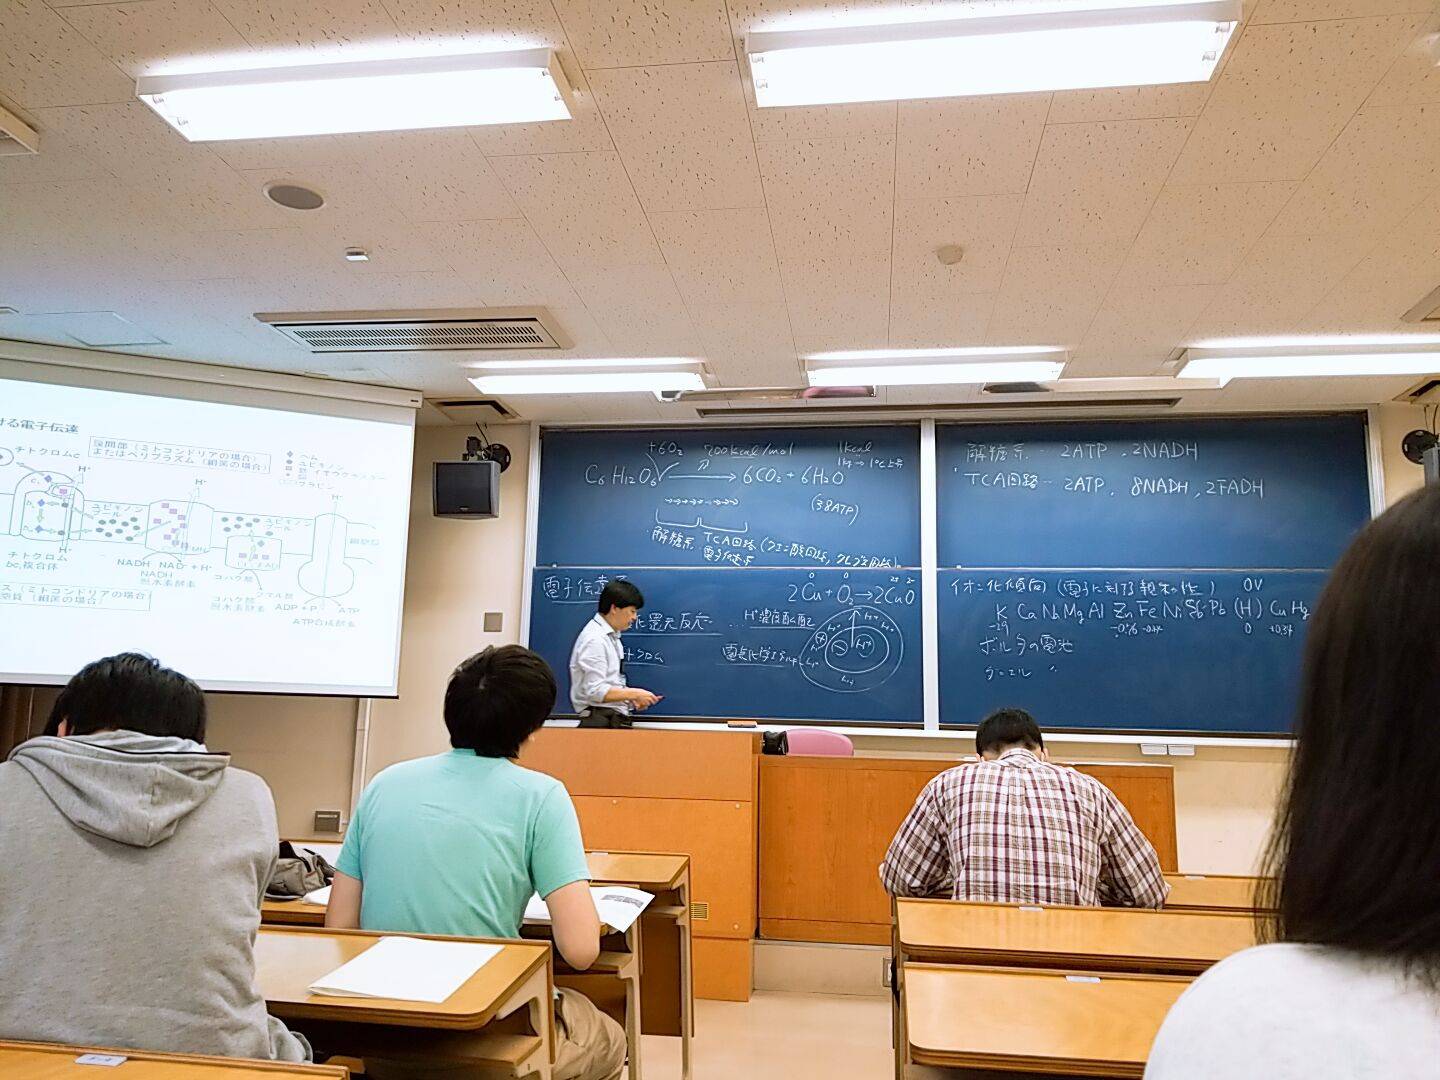 ける電子伝達
膜間部（ミトコンドリアの場合）
またはペリプラズム（細菌の場合）
ヘム
ユビキノン
鉄・イオウクラスター
フラビン
チトクロムc
H⁺
H⁺
H⁺
ユビキノン
プール
ユビキノン
プール
H⁺
チトクロム
bc₁複合体
NADH NAD⁺ + H⁺
NADH
脱水素酵素
コハク酸
フマル酸
コハク酸
脱水素酵素
ADP + P
ATP
ATP合成酵素
ス（ミトコンドリアの場合）
（細菌の場合）
+6O₂ 700kcal/mol 1kcal
C₆H₁₂O₆ → 6CO₂ + 6H₂O
1kg → 1℃上昇
(38ATP)
解糖系 TCA回路(クエン酸回路, クレブス回路)
電子伝達系
解糖系 … 2ATP, 2NADH
TCA回路 … 2ATP, 8NADH, 2FADH
電子伝達系
0 0 2+ 2-
2Cu + O₂ → 2CuO
化還元反応 … H⁺濃度勾配
電気化学
H⁺
イオン化傾向（電子に対する親和性） 0V
K Ca Na Mg Al Zn Fe Ni Sn Pb (H) Cu Hg
-2.9 -0.76 -0.44 0 +0.34
ボルタの電池
ダニエル 〃